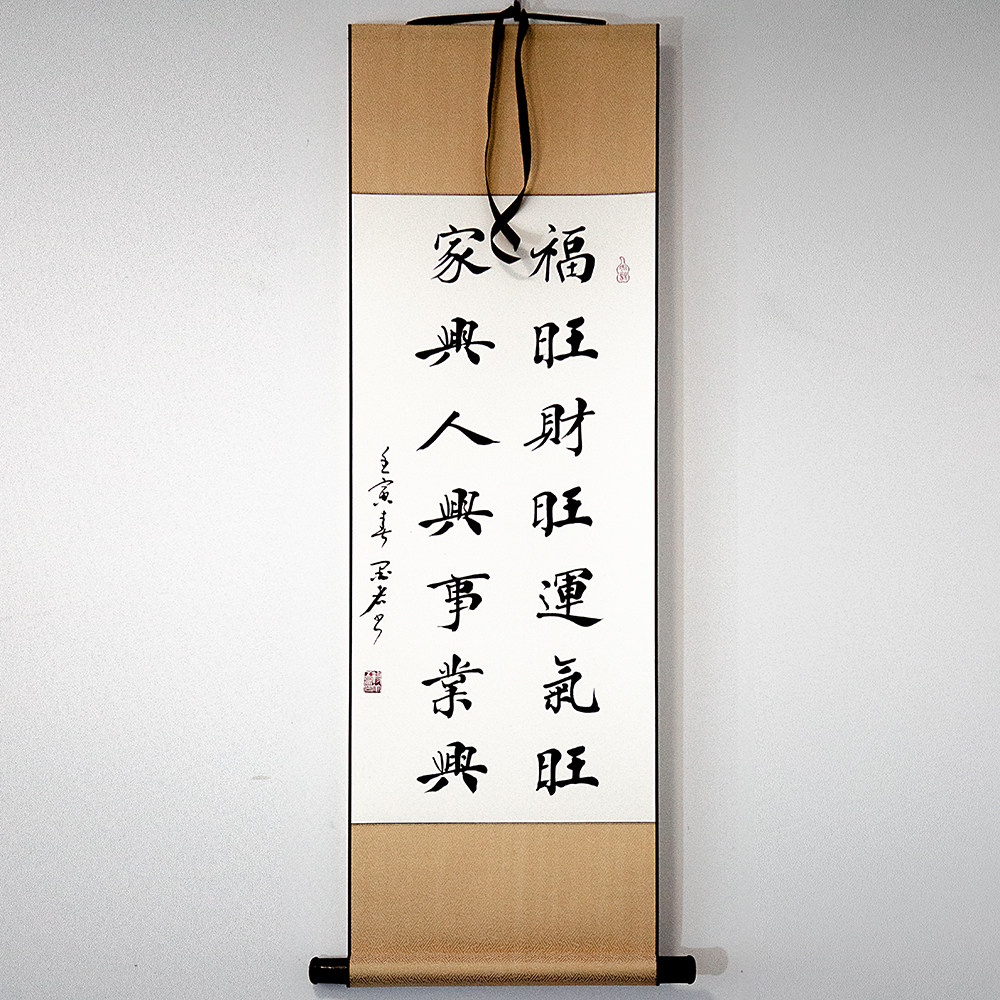 福旺財旺運氣旺
家興人興事業興
壬寅春